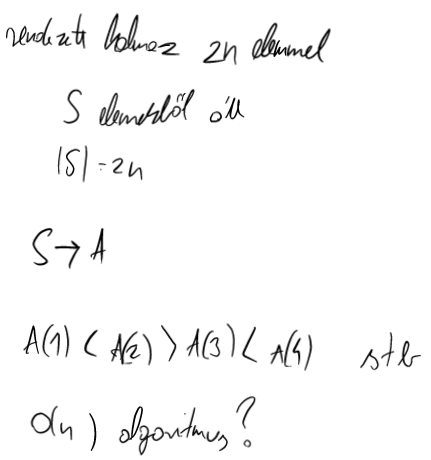 rendezett halmaz 2n elemmel
S elemekből áll
|S| = 2n
S → A
A(1) < A(2) > A(3) < A(4) stb
O(n) algoritmus?